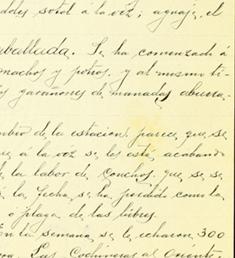 doles sotol á la vez; aguaje, el
aballada. Se ha comenzado á
machos y potros, y al mismo ti-
os garañones de manadas
mbio de la estacion, parece que se
que á la vez se les está acabando
la labor de Conchos, que se
á la fecha se ha perdido
o plaga de las liebres.
En la semana se le echaron 300
Las Cochineras al Oriente